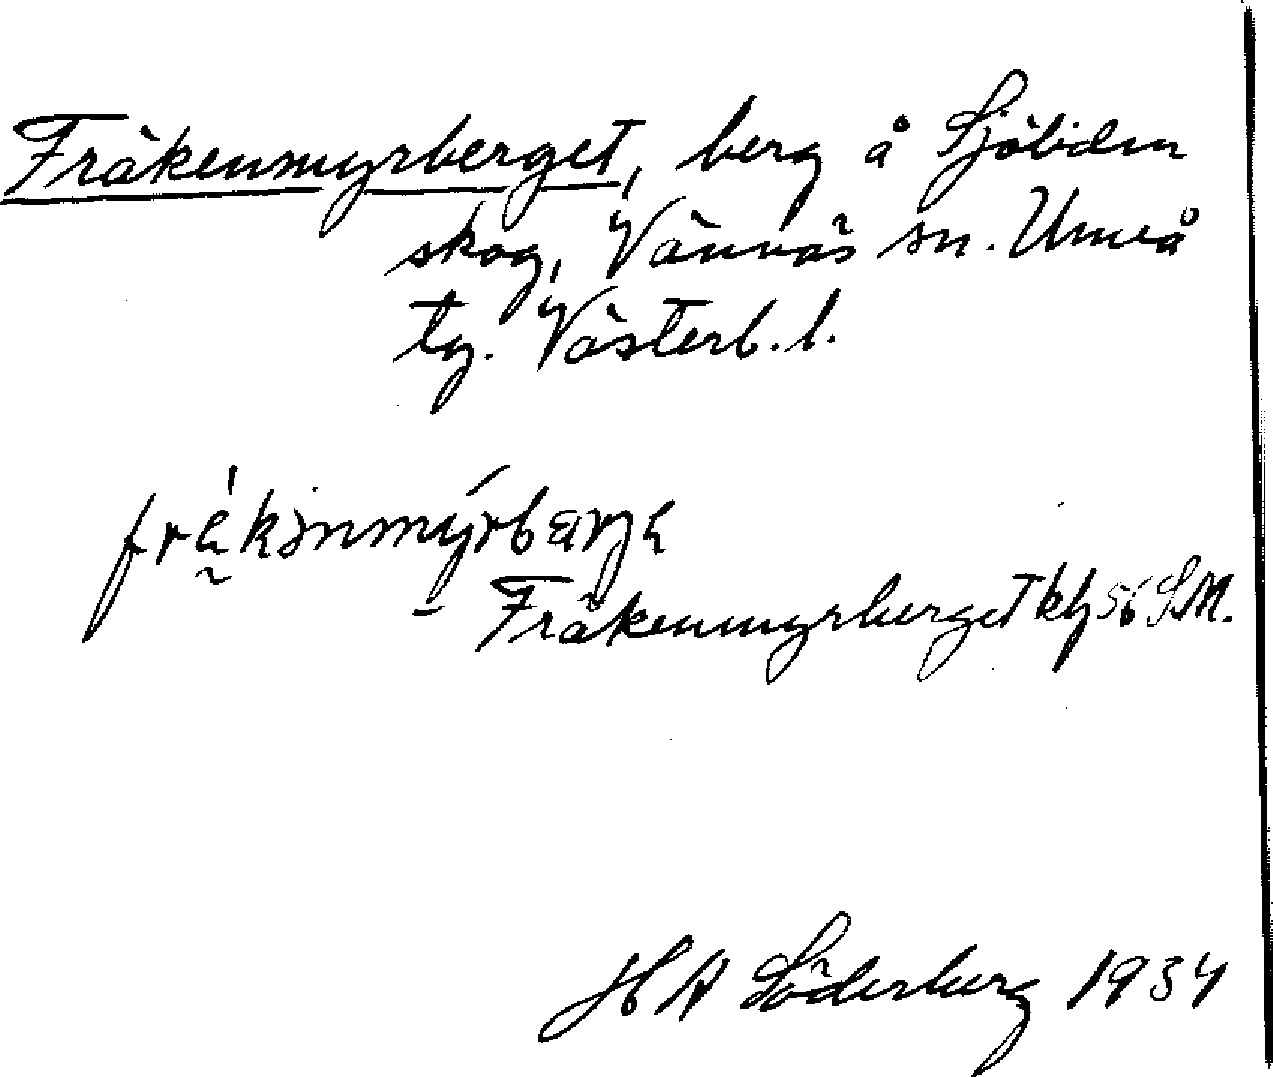 Fräkenmyrberget, berg å Sjöliden
skog, Vännäs sn. Umeå
tg. Västerb. l.
Fräkenmyrberget kbl 56 S.M.
H A Söderberg 1934